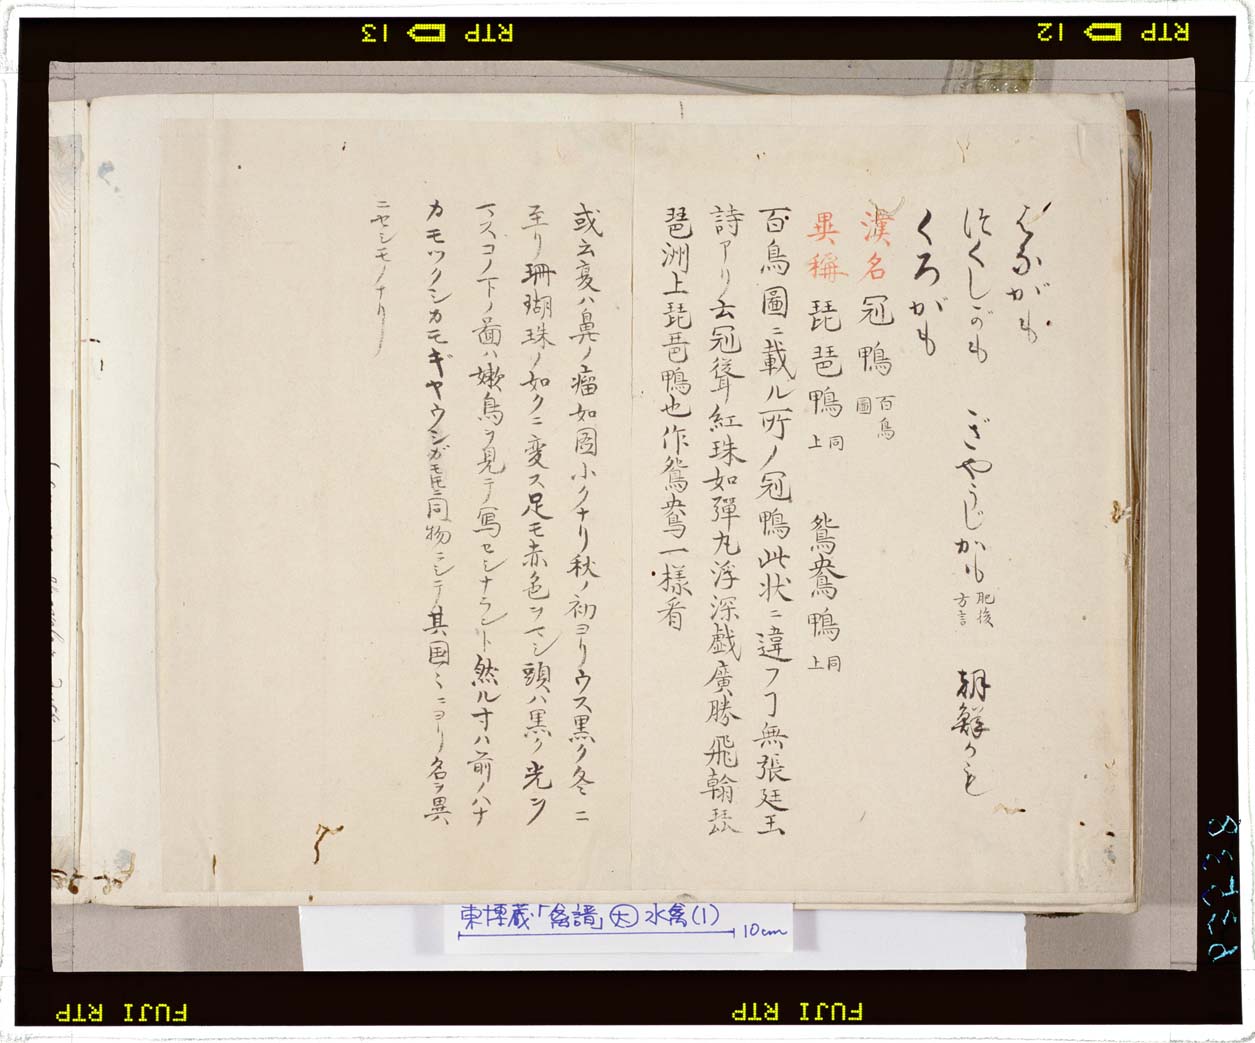 はながも
つくしがも　ぎやうじがも 肥後方言　朝鮮がも
くろがも
漢名 冠鴨 百鳥圖
異稱 琵琶鴨 同上　鴛鴦鴨 同上
百鳥圖ニ載ル所ノ冠鴨此状ニ違フヿ無張廷玉
詩アリ云冠聳紅珠如彈丸浮深戯廣勝飛翰琵
琶洲上琵琶鴨也作鴛鴦一樣看
或云夏ハ鼻ノ瘤如図小クナリ秋ノ初ヨリウス黒ク冬ニ
至リ珊瑚珠ノ如クニ変ス足モ赤色ヲマシ頭ハ黒ク光ヲ
マスコノ下ノ啚ハ嫩鳥ヲ見テ写セシナラント然ル寸ハ前ノハナ
カモツクシカモギヤウジガモ毛同物ニシテ其国〻ニヨリ名ヲ異
ニセシモノナリ
東博蔵「禽譜」大 水禽(1)
10cm
RTP 13
RTP 12
FUJI RTP
FUJI RTP